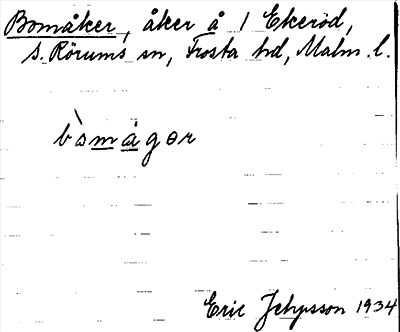 Bomåker, åker å 1 Ekeröd,
S. Rörums sn, Frosta hd, Malm. l.
bòmågər
Eric Jepsson 1934